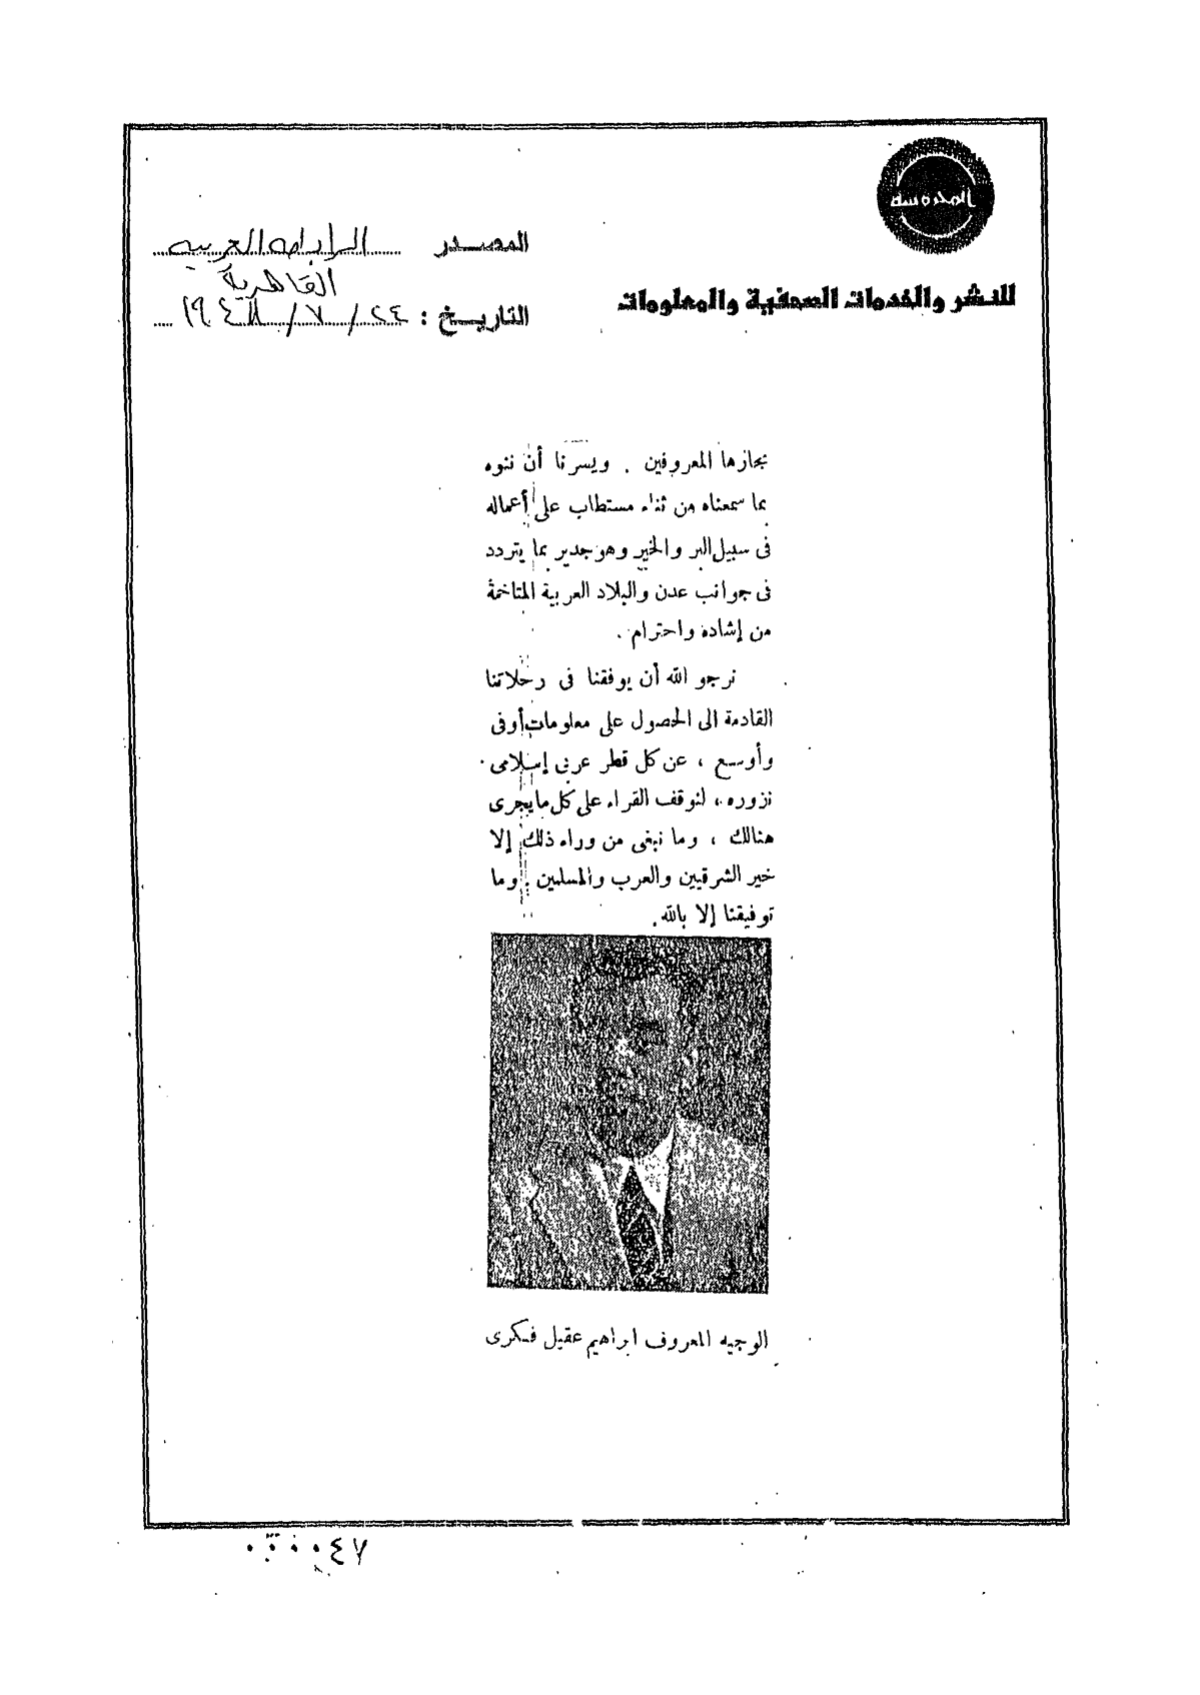 المحروسة
للنشر والخدمات الصحفية والمعلومات
المصدر الرابطة العربية
القاهرية
التاريخ : ٢٤ / ٧ /
تجارها المعروفين . ويسرنا أن ننوه
بما سمعناه من ثناء مستطاب على أعماله
فى سبيل البر والخير وهو جدير بما يتردد
فى جوانب عدن والبلاد العربية المتاخمة
من إشاده واحترام .
نرجو الله أن يوفقنا فى رحلاتنا
القادمة الى الحصول على معلومات أوفى
وأوسع ، عن كل قطر عربى إسلامى
نزوره ، لنوقف القراء على كل ما يجرى
هنالك ، وما نبغى من وراء ذلك إلا
خير الشرقيين والعرب والمسلمين . وما
توفيقنا إلا بالله .
الوجيه المعروف ابراهيم عقيل فكرى